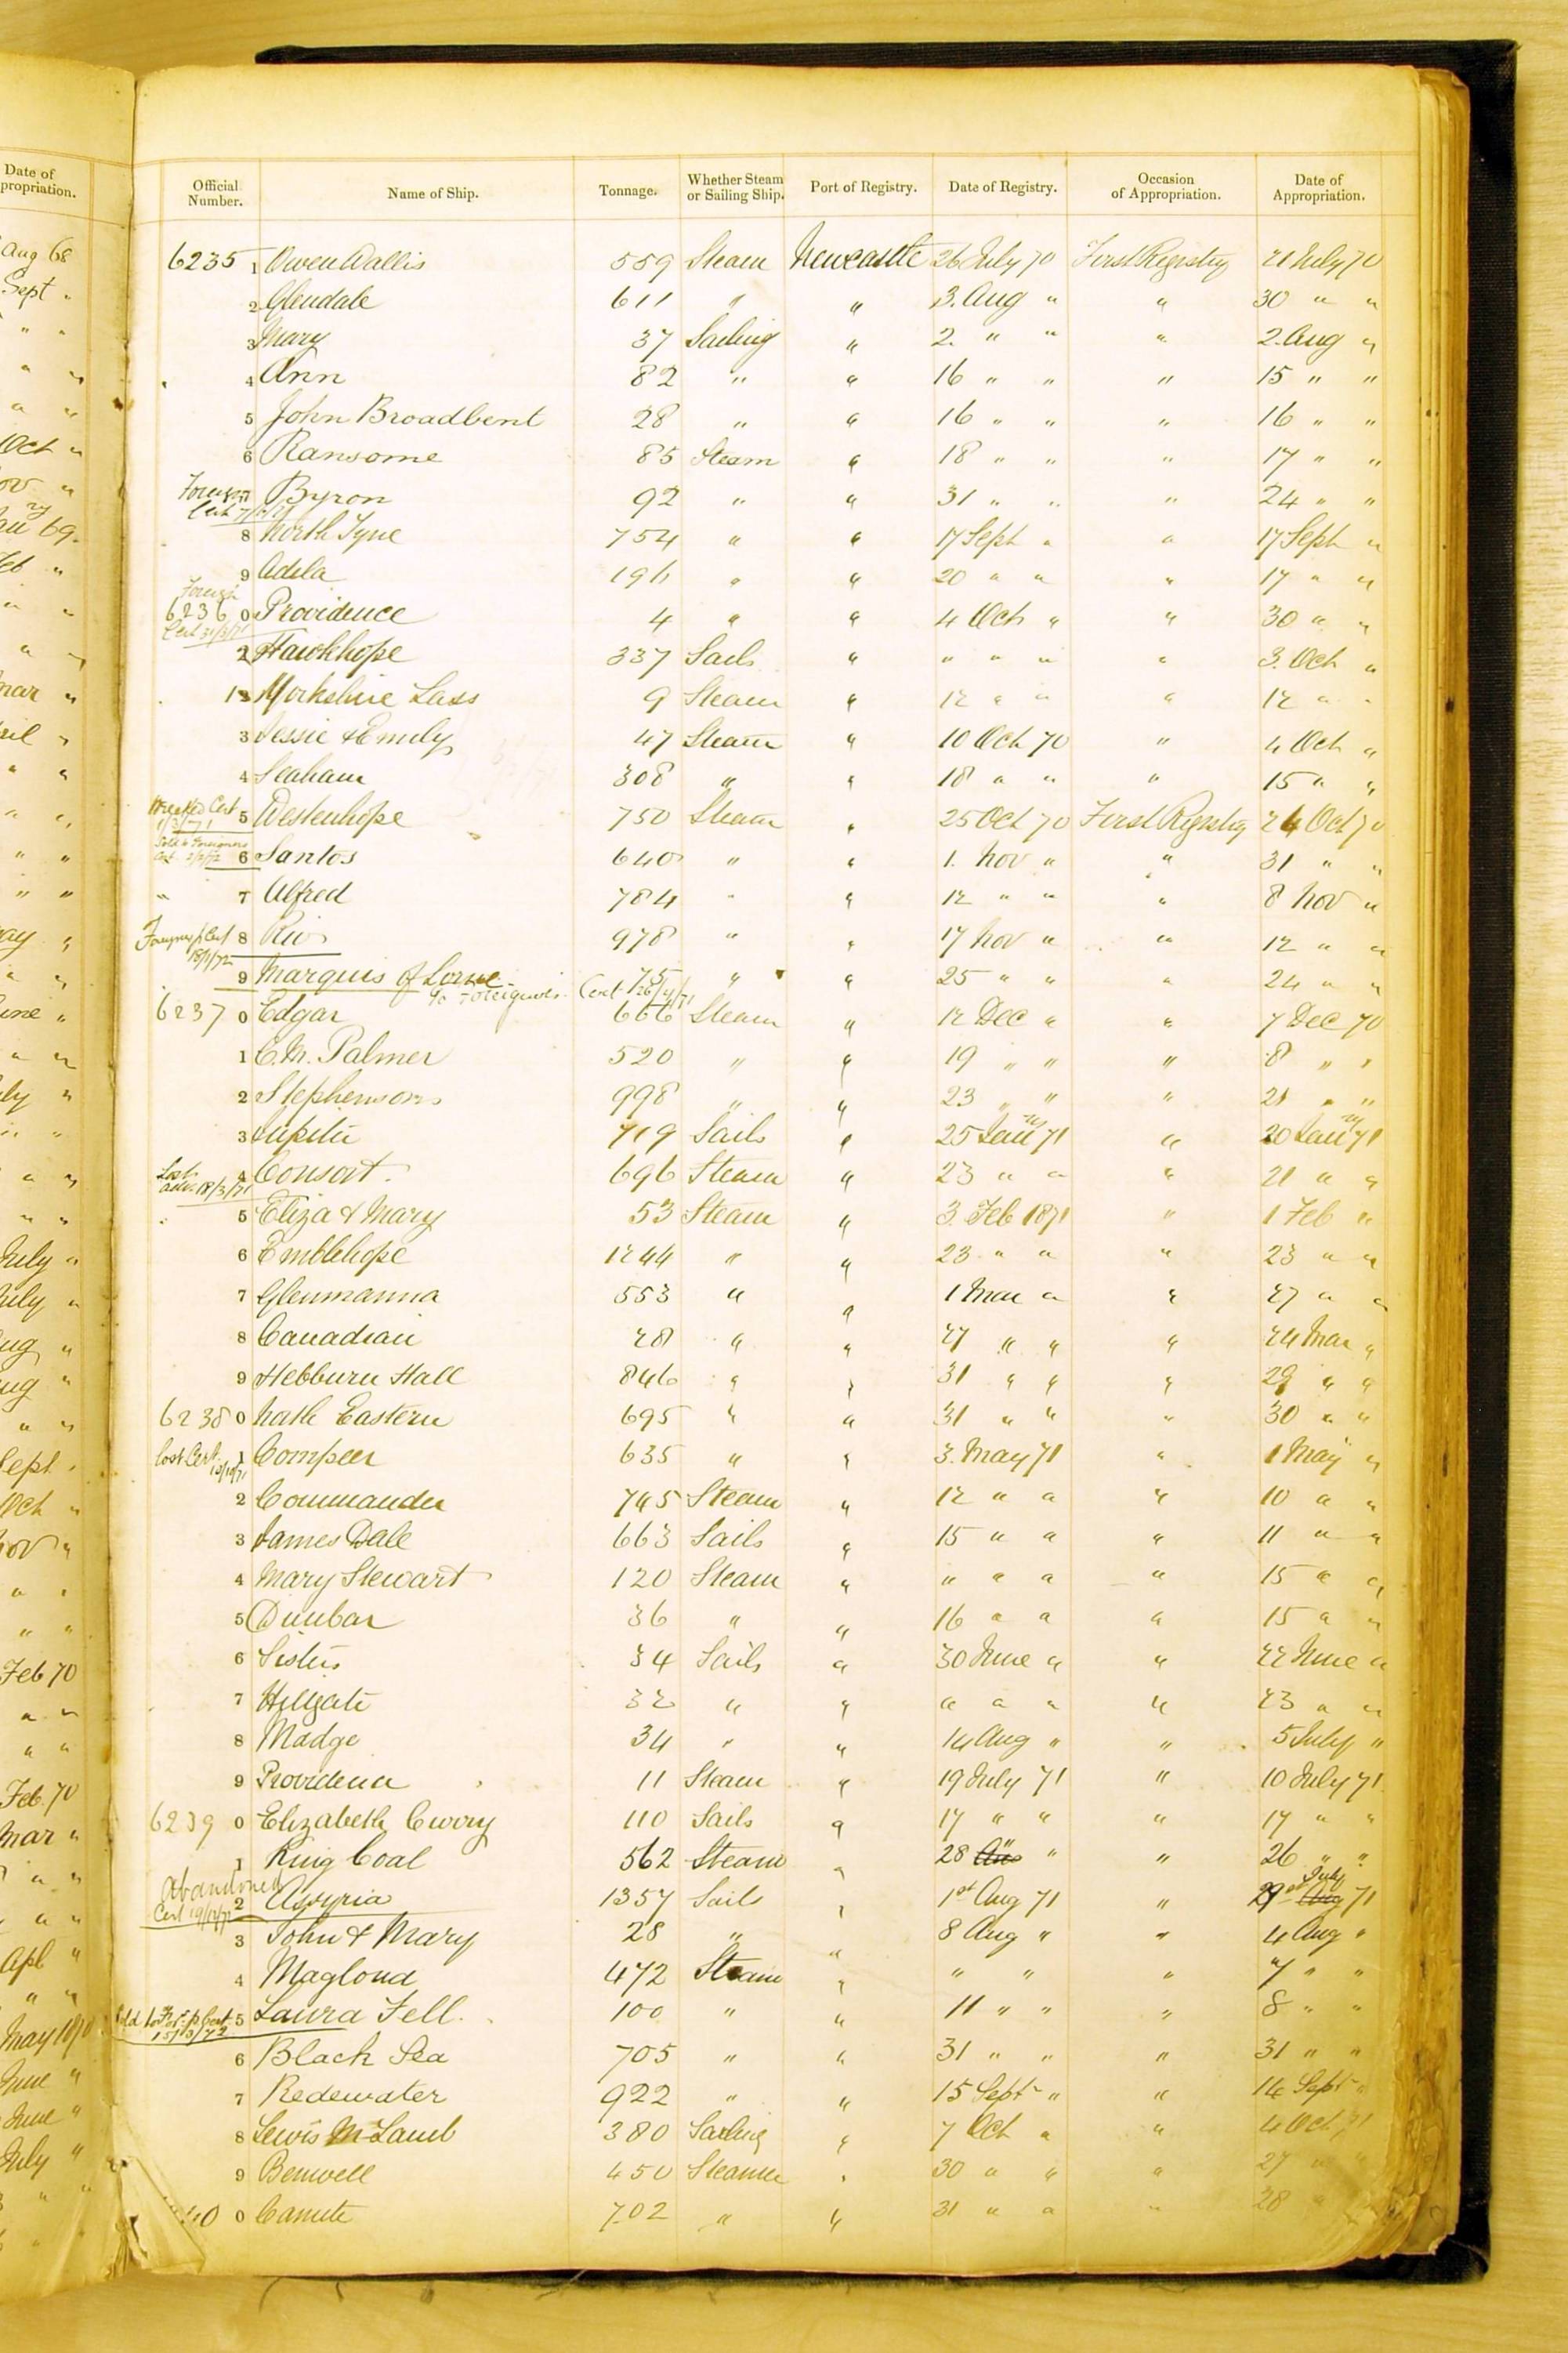 Date of
propriation.
Aug 68
Sept "
Oct "
69.
July "
July "
Sept
Oct "
Feb 70
Feb. 70
Mar "
Apl "
May 1870
June "
June "
July "
Official Number. Name of Ship. Tonnage. Whether Steam or Sailing Ship. Port of Registry. Date of Registry. Occasion of Appropriation. Date of Appropriation.
6235 1 Owen Wallis 559 Steam Newcastle 26 July 70 First Registry 21 July 70
2 Glendale 611 " " 3. Aug " " 30 " "
3 Mary 37 Sailing " 2. " " " 2. Aug "
4 Ann 82 " " 16 " " " 15 " "
5 John Broadbent 28 " " 16 " " " 16 " "
6 Ransome 85 Steam " 18 " " " 17 " "
Foreign Byron 92 " " 31 " " " 24 " "
8 North Tyne 754 " " 17 Sept " " 17 Sept "
9 Adela 196 " " 20 " " " 17 " "
Foreign
6236 0 Providence 4 " " 4 Oct " " 30 " "
Cert 31/3/71
2 Hawkhope 337 Sails " " " " " 3. Oct "
1 Yorkshire Lass 9 Steam " 12 " " " 12 " "
3 Jessie & Emily 47 Steam " 10 Oct 70 " 4 Oct "
4 Seaham 308 " " 18 " " " 15 " "
Wrecked Cert 1/3/71 5 Westenhope 750 Steam " 25 Oct 70 First Registry 24 Oct 70
Sold to Foreigners Cert 2/2/72 6 Santos 640 " " 1. Nov " " 31 " "
" 7 Alfred 784 " " 12 " " " 8 Nov "
8 Rio 978 " " 17 Nov " " 12 " "
18/1/72
9 Marquis of Lorne 75 " " 25 " " " 24 " "
to Foreigners. Cert 26/4/71
6237 0 Edgar 666 Steam " 12 Dec " " 7 Dec 70
1 C. M. Palmer 520 " " 19 " " " 8 " "
2 Stephensons 998 " " 23 " " " 21 " "
3 Jupiter 719 Sails " 25 Jany 71 " 20 Jany 71
4 Consort. 696 Steam " 23 " " " 21 " "
Lost 18/3/71
5 Eliza & Mary 53 Steam " 3. Feb 1871 " 1 Feb "
6 Emblehope 1244 " " 23 " " " 23 " "
7 Glenmanna 553 " " 1 Mar " " 27 " "
8 Canadian 281 " " 27 " " " 24 Mar "
9 Hebburn Hall 846 " " 31 " " " 29 " "
6238 0 North Eastern 695 " " 31 " " " 30 " "
Lost Cert. 1 Compeer 635 " " 3. May 71 " 1 May "
2 Commander 745 Steam " 12 " " " 10 " "
3 James Dale 663 Sails " 15 " " " 11 " "
4 Mary Stewart 120 Steam " " " " " 15 " "
5 Dunbar 36 " " 16 " " " 15 " "
6 Sisters 34 Sails " 30 June " " 22 June "
7 Hillgate 32 " " " " " " 23 " "
8 Madge 34 " " 14 Aug " " 5 July "
9 Providence 11 Steam " 19 July 71 " 10 July 71
6239 0 Elizabeth Curry 110 Sails " 17 " " " 17 " "
1 King Coal 562 Steam " 28 " " " 26 " "
Abandoned
Cert 19/12/71 2 Assyria 1357 Sails " 1st Aug 71 " 29 July 71
3 John & Mary 28 " " 8 Aug " " 4 Aug "
4 Maglona 472 Steam " " " " 7 " "
Cert 15/3/72 5 Laura Fell. 100 " " 11 " " " 8 " "
6 Black Sea 705 " " 31 " " " 31 " "
7 Redewater 922 " " 15 Sept " " 14 Sept "
8 Lewis M Lamb 380 Sailing " 7 Oct " " 4 Oct 71
9 Benwell 450 Steamer " 30 " " " 27 " "
40 0 Canute 702 " " 31 " " " 28 "